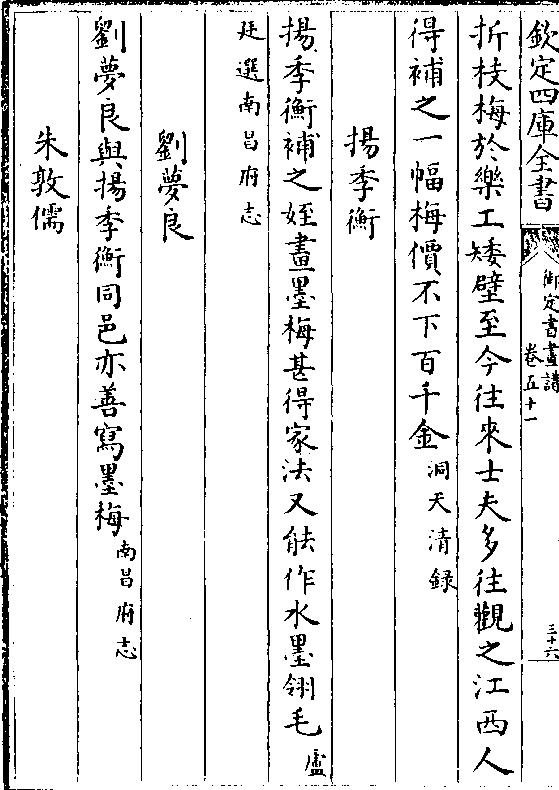 欽定四庫全書
御定書畫譜
卷五十一
三十六
折枝梅於樂工矮壁至今往來士夫多往觀之江西人
得補之一幅梅價不下百千金洞天清録
揚季衡
揚季衡補之姪畫墨梅甚得家法又能作水墨翎毛盧
廷選南昌府志
劉夢良
劉夢良與揚季衡同邑亦善寫墨梅南昌府志
朱敦儒